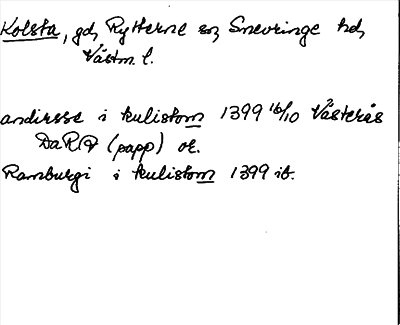 Kolsta, gd, Rytterne sn, Snevringe hd,
Västm. l.
andirsse i kulistom 1399 16/10 Västerås
DaRP (papp) or.
Ramburgi i kulistom 1399 ib.